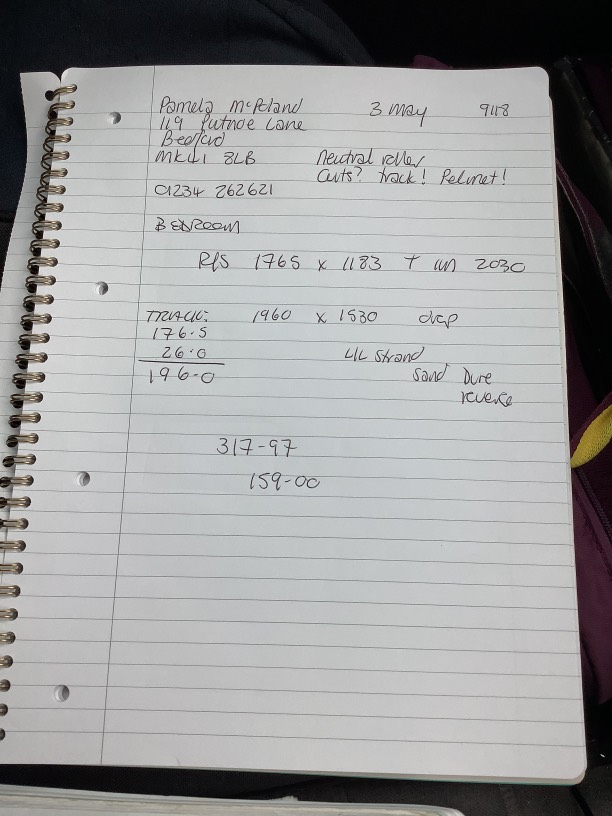 Pamela McPoland 3 May 9118
119 Putnoe Lane
Bedford
MK41 8LB Neutral roller
Curts? track! Pelmet!
01234 262621
BEDROOM
R/S 1765 x 1183 T on 2030
TRACK: 1960 x 1530 drop
176.5
26.0 U/L Strand
196-0 Sand Dure
reverse
317-97
159-00